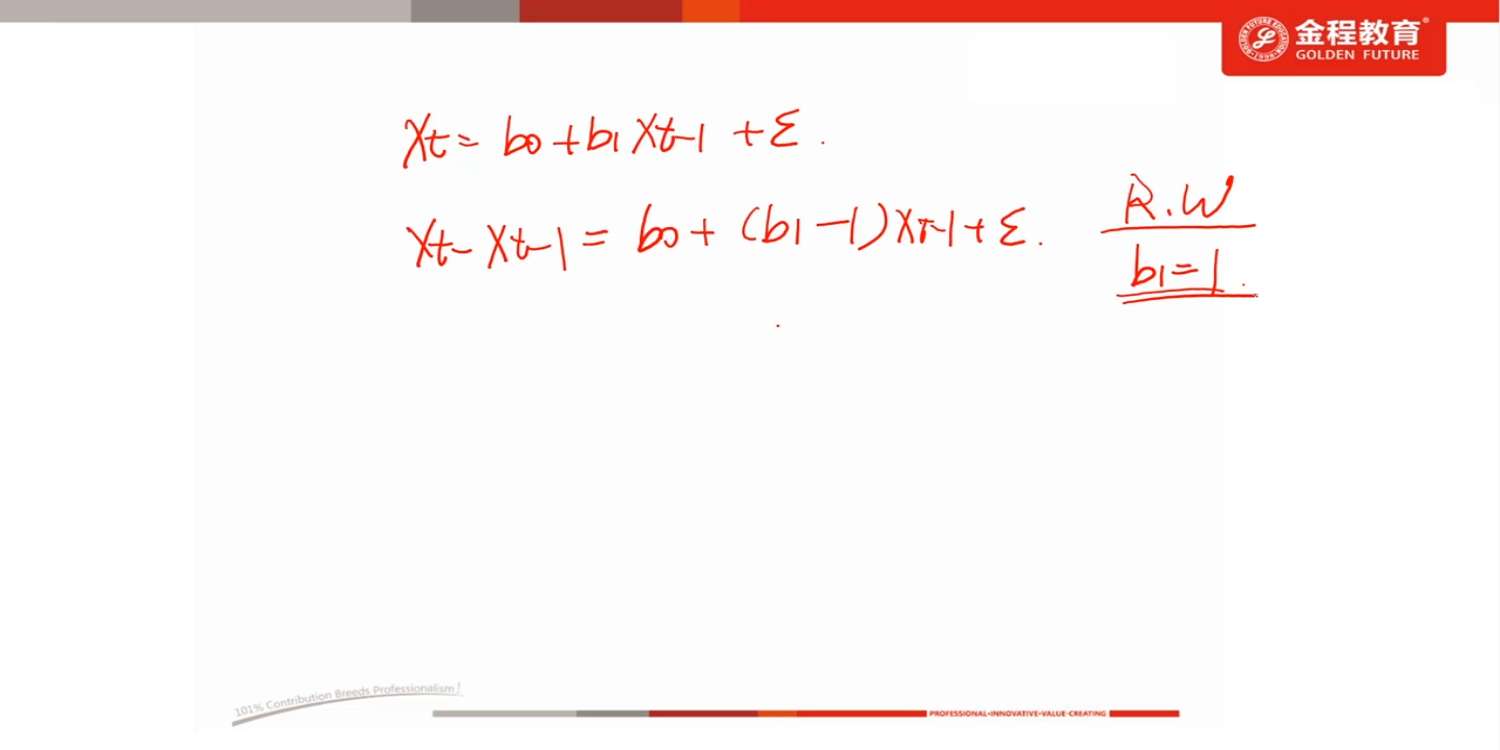 金程教育®
GOLDEN FUTURE
Xt = b0 + b1 Xt-1 + ε.
Xt - Xt-1 = b0 + (b1 - 1) Xt-1 + ε.
R.W
b1 = 1.
101% Contribution Breeds Professionalism!
PROFESSIONAL•INNOVATIVE•VALUE-CREATING